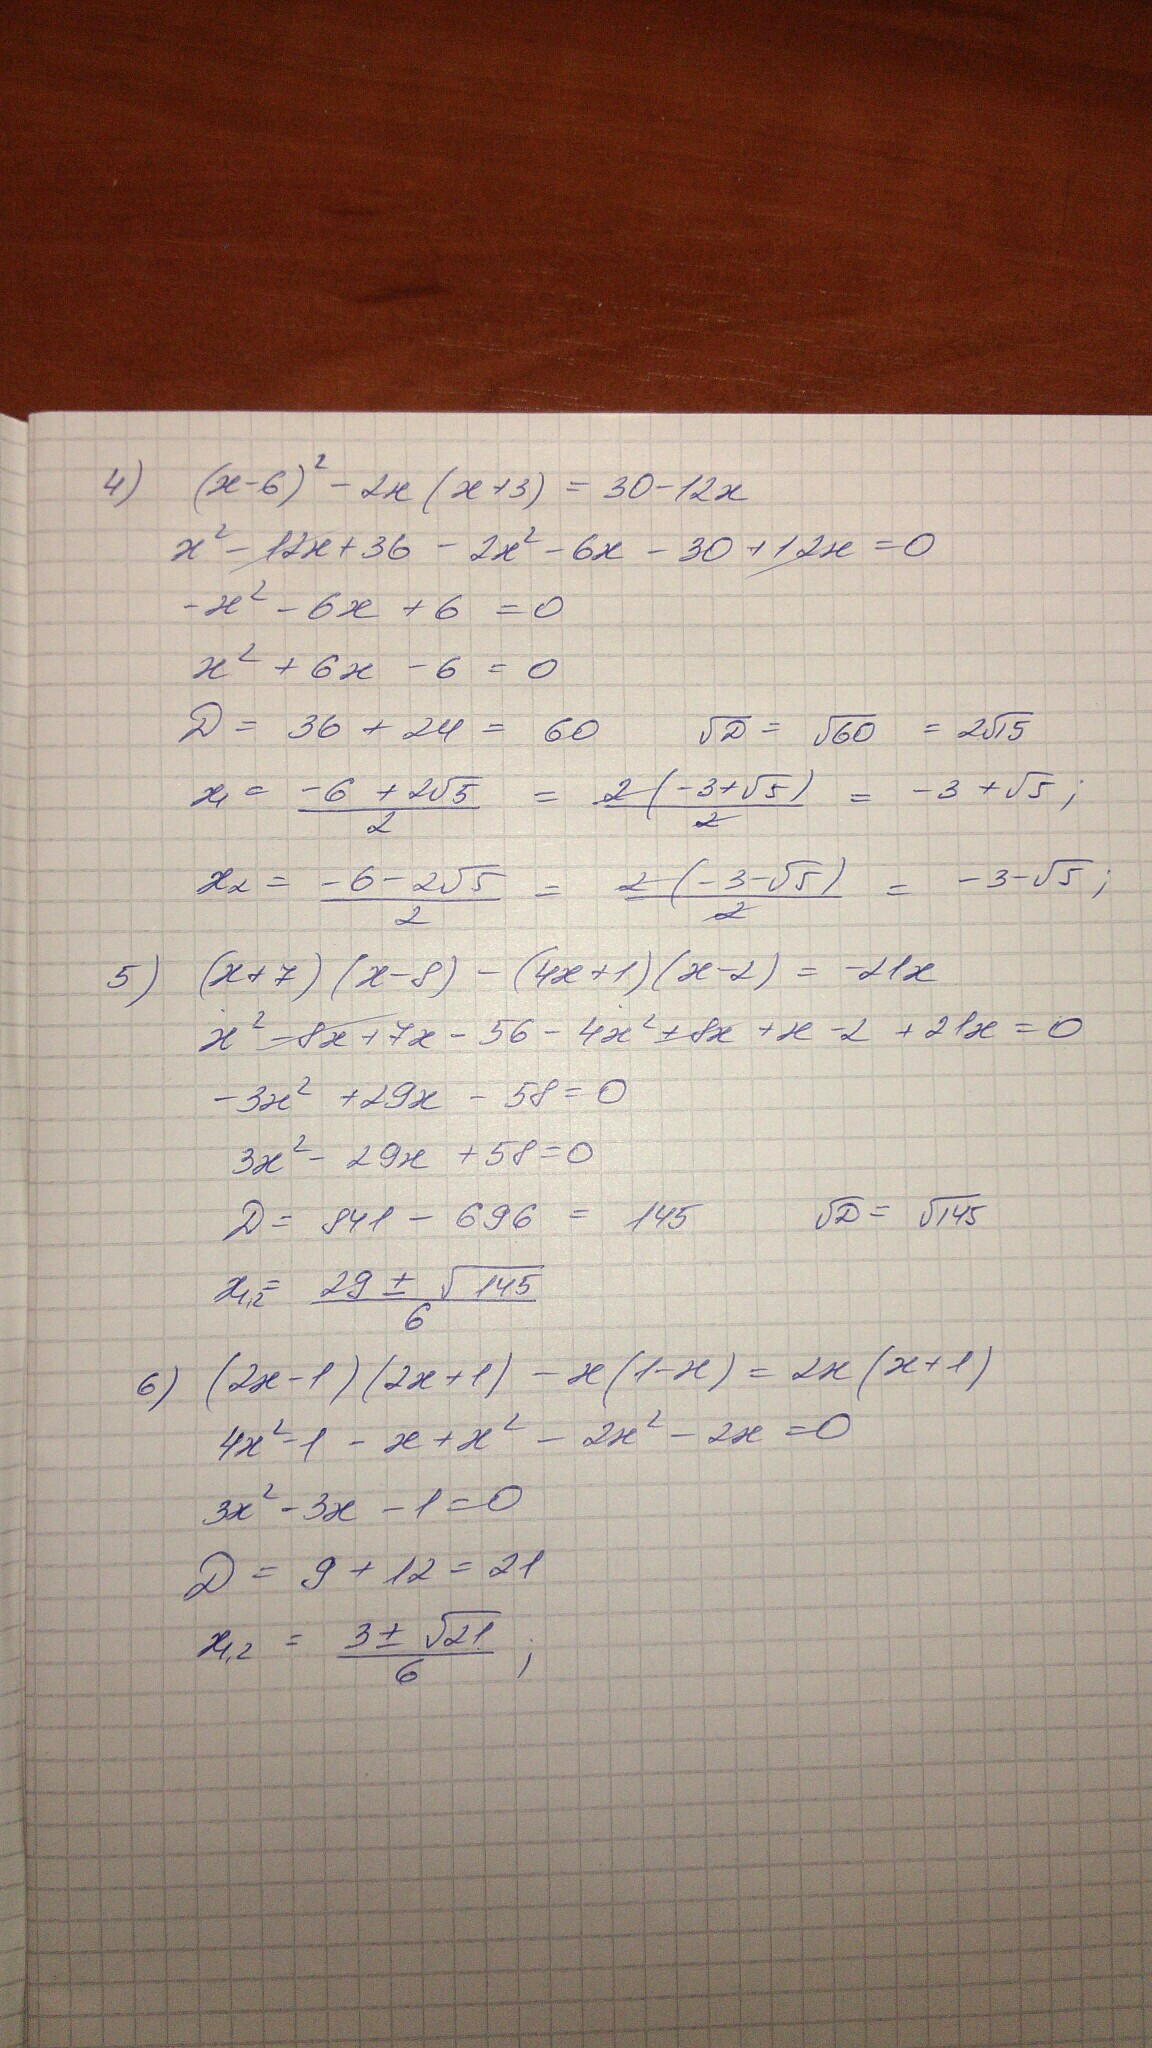 4) (x-6)² - 2x(x+3) = 30-12x
x² - 12x + 36 - 2x² - 6x - 30 + 12x = 0
-x² - 6x + 6 = 0
x² + 6x - 6 = 0
D = 36 + 24 = 60 √D = √60 = 2√15
x₁ = (-6 + 2√5)/2 = 2(-3+√5)/2 = -3 + √5;
x₂ = (-6 - 2√5)/2 = 2(-3-√5)/2 = -3-√5;
5) (x+7)(x-8) - (4x+1)(x-2) = -21x
x² - 8x + 7x - 56 - 4x² + 8x + x - 2 + 21x = 0
-3x² + 29x - 58 = 0
3x² - 29x + 58 = 0
D = 841 - 696 = 145 √D = √145
x₁,₂ = (29 ± √145)/6
6) (2x-1)(2x+1) - x(1-x) = 2x(x+1)
4x² - 1 - x + x² - 2x² - 2x = 0
3x² - 3x - 1 = 0
D = 9 + 12 = 21
x₁,₂ = (3 ± √21)/6;